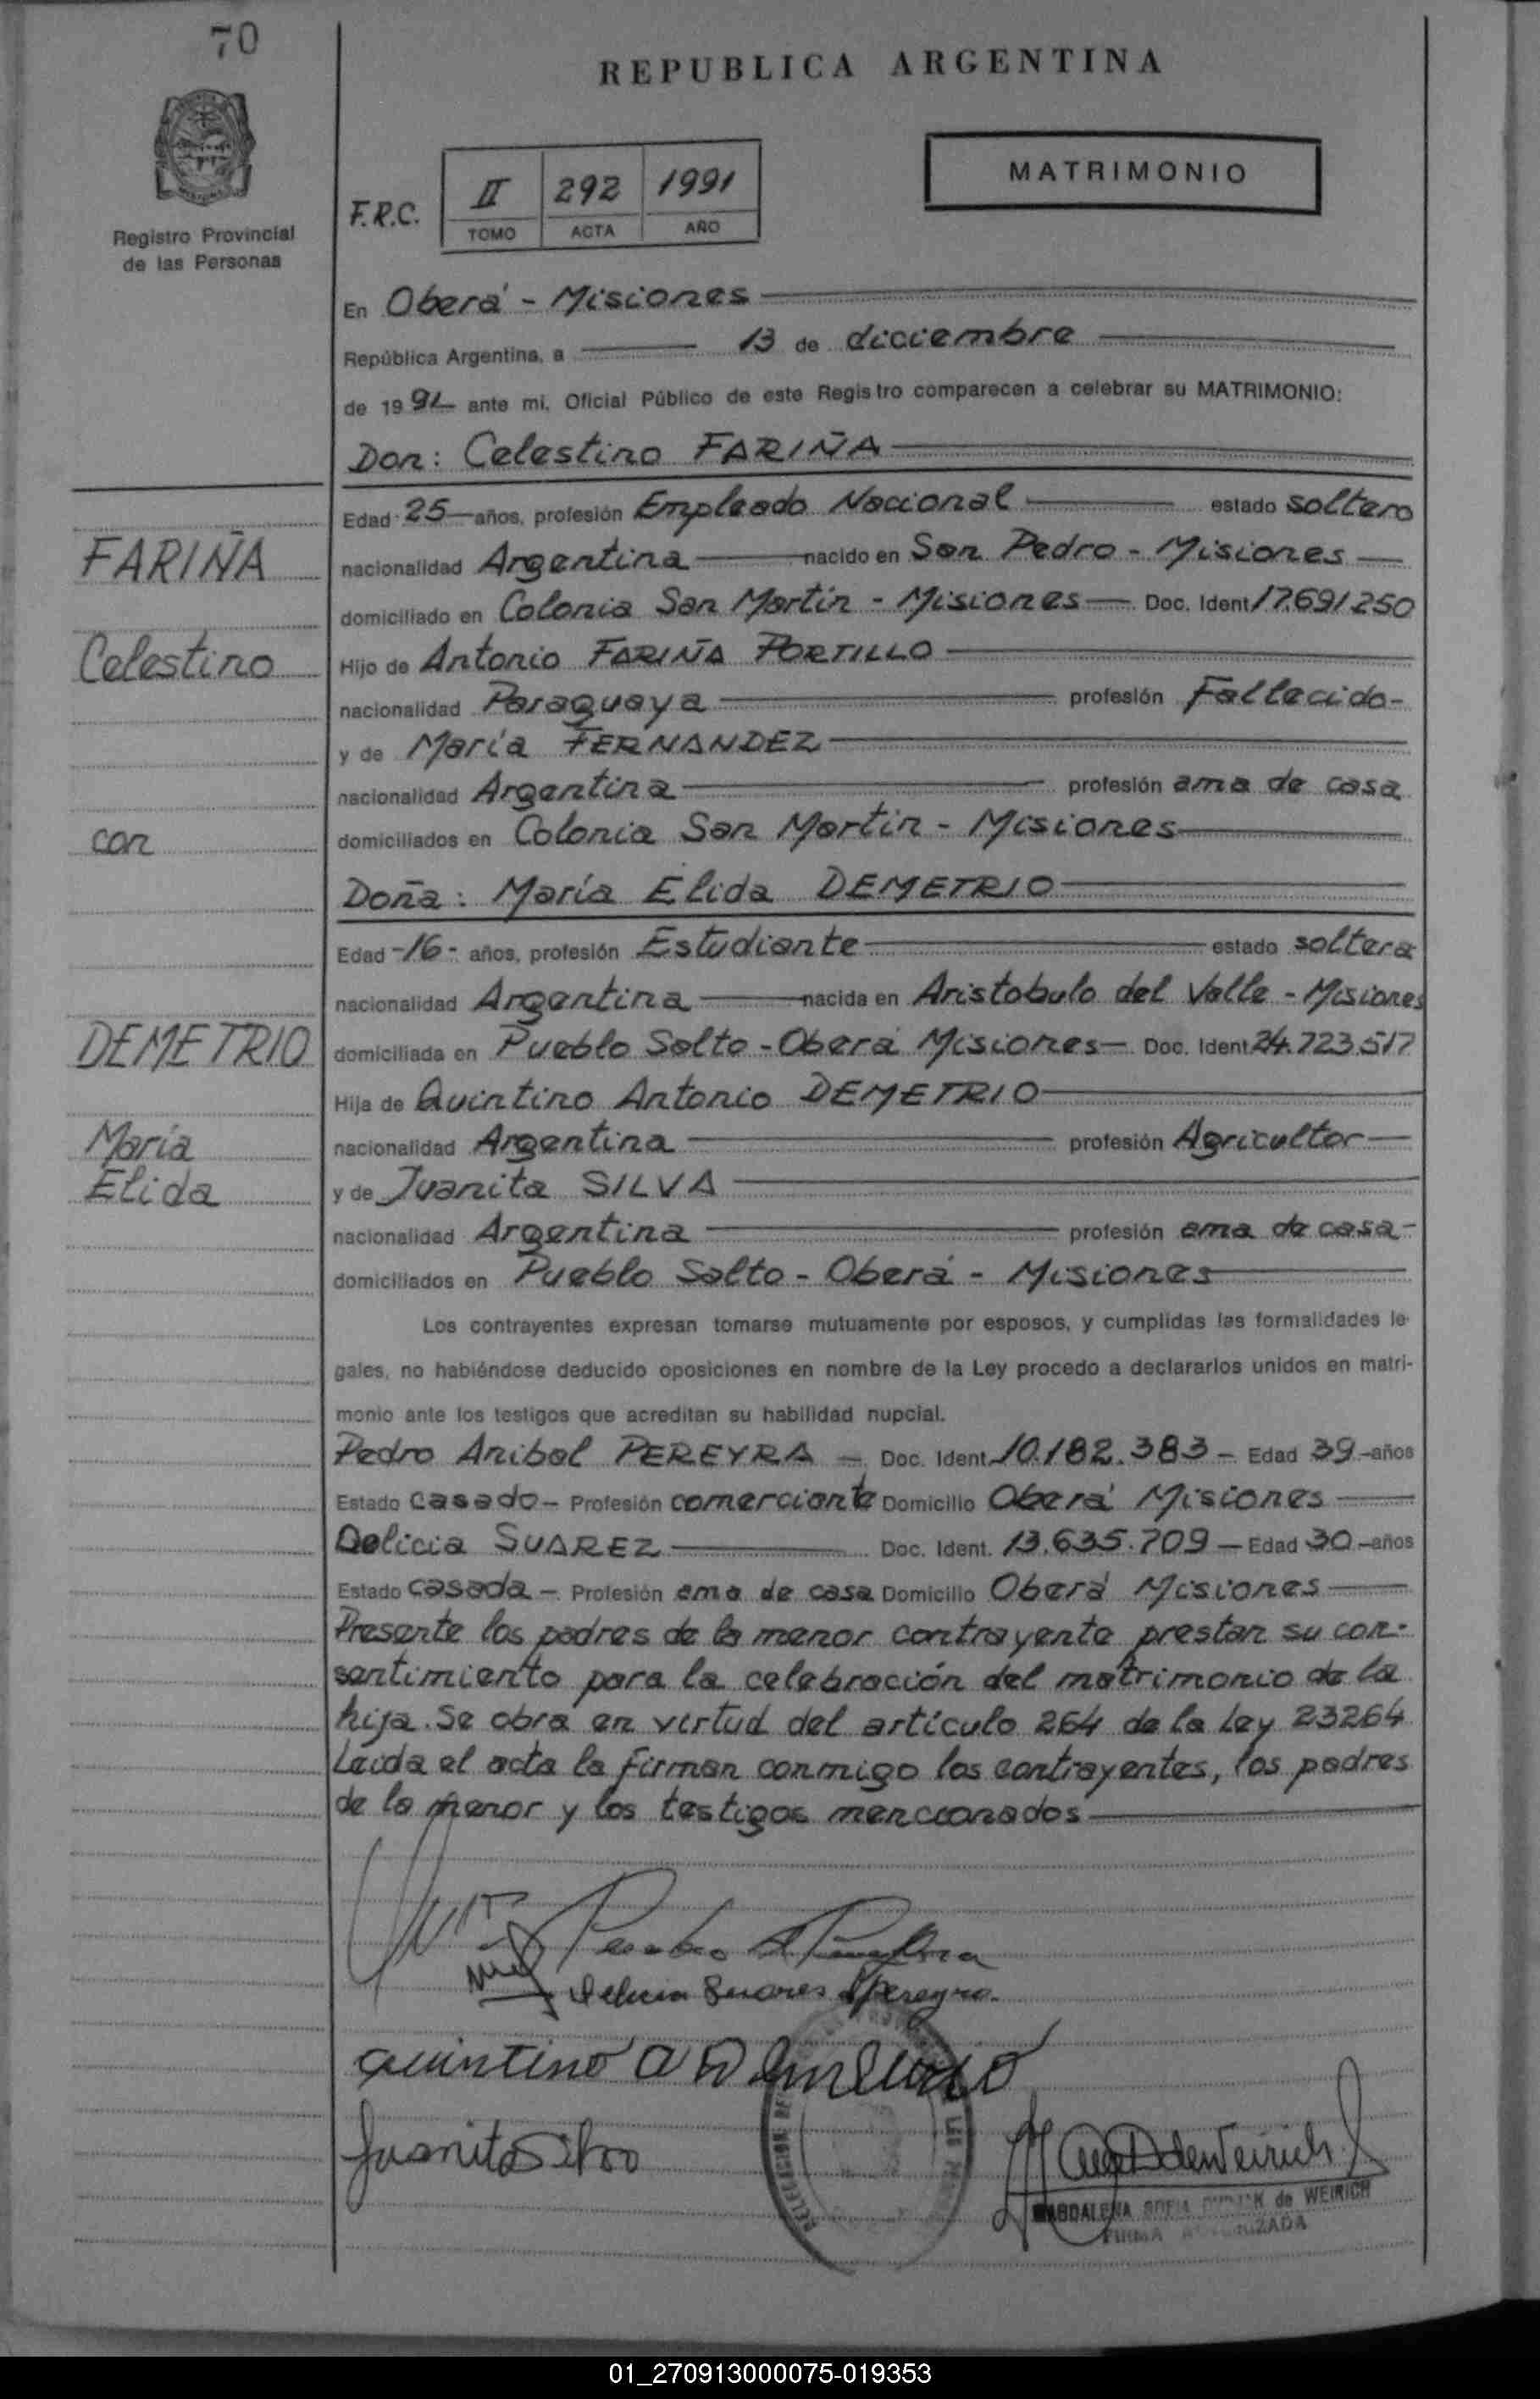 70
REPUBLICA ARGENTINA
MATRIMONIO
Registro Provincial
de las Personas
F.R.C.
II 292 1991
TOMO ACTA AÑO
En Oberá - Misiones
República Argentina, a 13 de diciembre
de 1991 ante mi, Oficial Público de este Registro comparecen a celebrar su MATRIMONIO:
Don: Celestino FARIÑA
Edad 25 años, profesión Empleado Nacional estado soltero
FARIÑA
nacionalidad Argentina nacido en San Pedro - Misiones
domiciliado en Colonia San Martin - Misiones Doc. Ident 17.691250
Celestino
Hijo de Antonio FARIÑA PORTILLO
nacionalidad Paraguaya profesión Fallecido-
y de María FERNANDEZ
nacionalidad Argentina profesión ama de casa
con
domiciliados en Colonia San Martin - Misiones
Doña: María Elida DEMETRIO
Edad -16- años, profesión Estudiante estado soltera
nacionalidad Argentina nacida en Aristobulo del Valle - Misiones
DEMETRIO
domiciliada en Pueblo Salto - Oberá Misiones Doc. Ident 24.723.517
Hija de Quintino Antonio DEMETRIO
María
nacionalidad Argentina profesión Agricultor
Elida
y de Juanita SILVA
nacionalidad Argentina profesión ama de casa-
domiciliados en Pueblo Salto - Oberá - Misiones
Los contrayentes expresan tomarse mutuamente por esposos, y cumplidas las formalidades le-
gales, no habiéndose deducido oposiciones en nombre de la Ley procedo a declararlos unidos en matri-
monio ante los testigos que acreditan su habilidad nupcial.
Pedro Anibal PEREYRA - Doc. Ident. 10.182.383 - Edad 39 -años
Estado casado - Profesión comerciante Domicilio Oberá Misiones
Delicia SUAREZ Doc. Ident. 13.635.709 - Edad 30 -años
Estado casada - Profesión ama de casa Domicilio Oberá Misiones
Presente los padres de la menor contrayente prestan su con-
sentimiento para la celebración del matrimonio de la
hija. Se obra en virtud del artículo 264 de la Ley 23264
Leida el acta la firman conmigo los contrayentes, los padres
de la menor y los testigos mencionados
Quintino A Demetrio
Juanita Silva
DELEGACION DE LAS
MAGDALENA SOFIA de WEIRICH
FIRMA AUTORIZADA
01_270913000075-019353